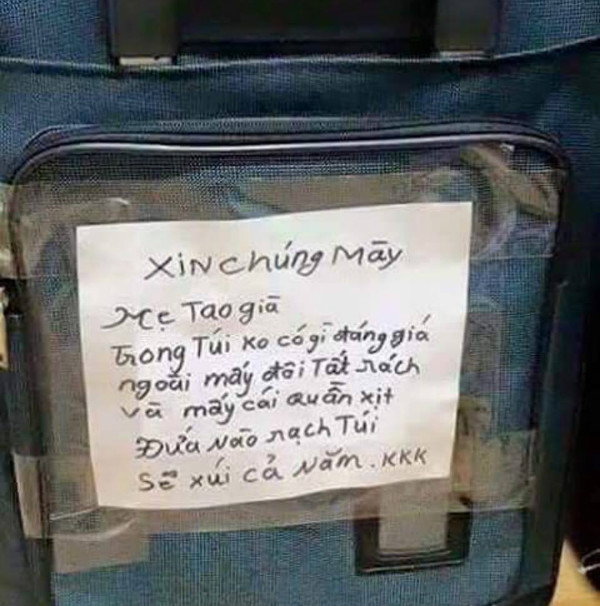 XiN chúng Mày
Mẹ Tao già
Trong Túi Ko có gì đáng giá
ngoài mấy đôi Tất rách
và mấy cái quần xịt
Đứa Nào rạch Túi
Sẽ xúi cả Năm. KKK